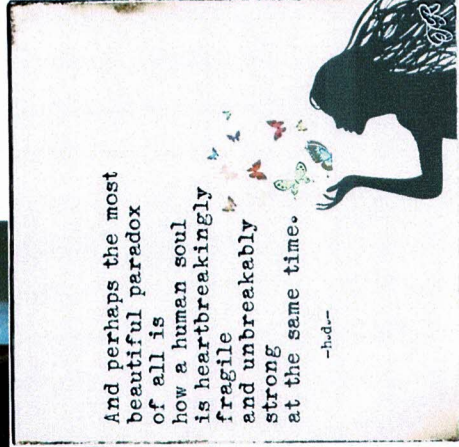 And perhaps the most
beautiful paradox
of all is
how a human soul
is heartbreakingly
fragile
and unbreakably
strong
at the same time.
-h.d.-